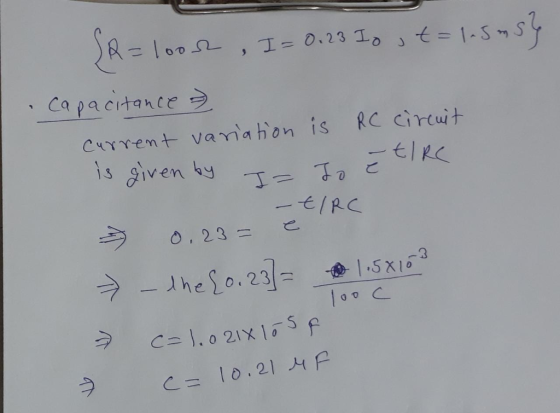 {R = 100Ω, I = 0.23 I₀, t = 1.5 mS}
. Capacitance ⇒
Current variation is RC circuit
is given by I = I₀ e^-t/RC
⇒ 0.23 = e^-t/RC
⇒ -lne[0.23] = 1.5×10^-3 / 100 C
⇒ C = 1.021×10^-5 F
⇒ C = 10.21 μF